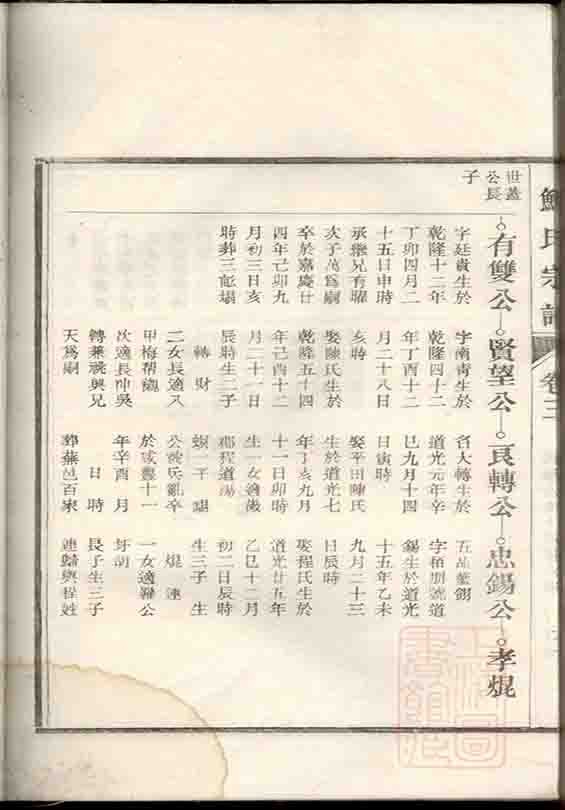 鮑氏宗譜
卷三
世蓋
公長
子
有雙公
賢望公
良轉公
忠錫公
孝焜
字廷貴生於
乾隆十二年
丁卯四月二
十五日申時
承繼兄有曜
次子萬為嗣
卒於嘉慶廿
四年己卯九
月初三日亥
時葬三畝塌
字南青生於
乾隆四十二
年丁酉十二
月二十八日
亥時
娶陳氏生於
乾隆五十四
年己酉十二
月二十一日
辰時生二子
轉 財
二女長適
甲梅帮魏
次適長冲吳
轉兼祧興兄
天為嗣
名大轉生於
道光元年辛
巳九月十四
日寅時
娶平田陳氏
生於道光七
年丁亥九月
十一日卯時
生一女適
郡程道湯
平
公被兵亂卒
於咸豐十一
年辛酉 月
日 時
葬蕪邑百家
五品藍翎
號道
錫生於道光
十五年乙未
九月二十三
日辰時
娶程氏生於
道光廿五年
乙巳十二月
初二日辰時
生三子 生
焜 連
一女適公
圩胡
長子生三子
連歸與程姓
上海圖書館藏